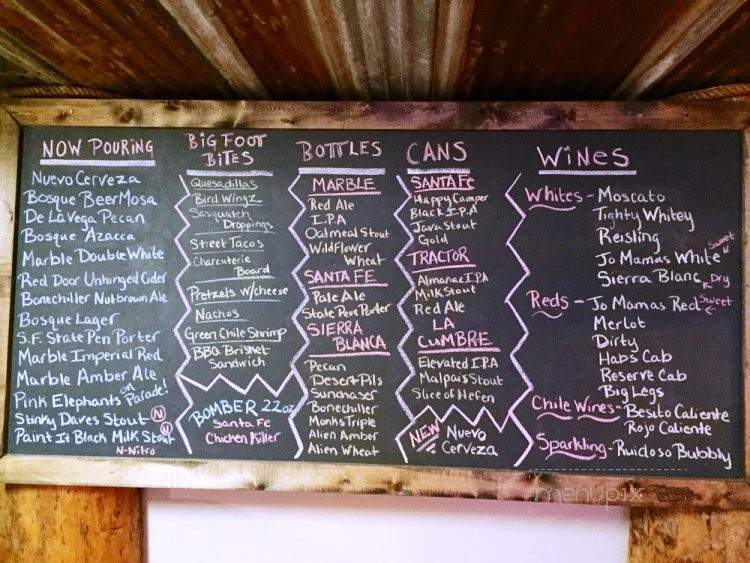 NOW POURING
Nuevo Cerveza
Bosque BeerMosa
De La Vega Pecan
Bosque Azacca
Marble Double White
Red Door Unhinged Cider
Bonechiller Nutbrown Ale
Bosque Lager
S.F. State Pen Porter
Marble Imperial Red
Marble Amber Ale
Pink Elephants on Parade!
Stinky Daves Stout N
Paint It Black Milk Stout N
N-Nitro
BIG FOOT
BITES
Quesadillas
Bird Wingz
Sasquatch
Droppings
Street Tacos
Charcuterie
Board
Pretzels w/cheese
Nachos
Green Chile Shrimp
BBQ Brisket
Sandwich
BOMBER 22oz
Santa Fe
Chicken Killer
BOTTLES
MARBLE
Red Ale
I.P.A
Oatmeal Stout
Wildflower
Wheat
SANTA FE
Pale Ale
State Pen Porter
SIERRA
BLANCA
Pecan
Desert Pils
Sunchaser
Bonechiller
Monks Triple
Alien Amber
Alien Wheat
CANS
SANTA Fe
Happy Camper
Black I.P.A
Java Stout
Gold
TRACTOR
Almanac I.P.A
Milk Stout
Red Ale
LA
CUMBRE
Elevated I.P.A
Malpais Stout
Slice of Hefen
NEW Nuevo
Cerveza
WINES
Whites - Moscato
Tighty Whitey
Reisling
Jo Mamas White Sweet
Sierra Blanc Dry
Reds - Jo Mamas Red Sweet
Merlot
Dirty
Habs Cab
Reserve Cab
Big Legs
Chile Wines - Besito Caliente
Rojo Caliente
Sparkling - Ruidoso Bubbly
menupix